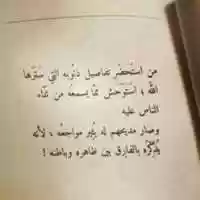 من استحضر تفاصيل ذنوبه التي سترها
الله ؛ استوحش مما يسمعه من ثناء
الناس عليه
وصار مديحهم له يُثير مواجعه ، لأنه
يُذكّره بالفارق بين ظاهره وباطنه !